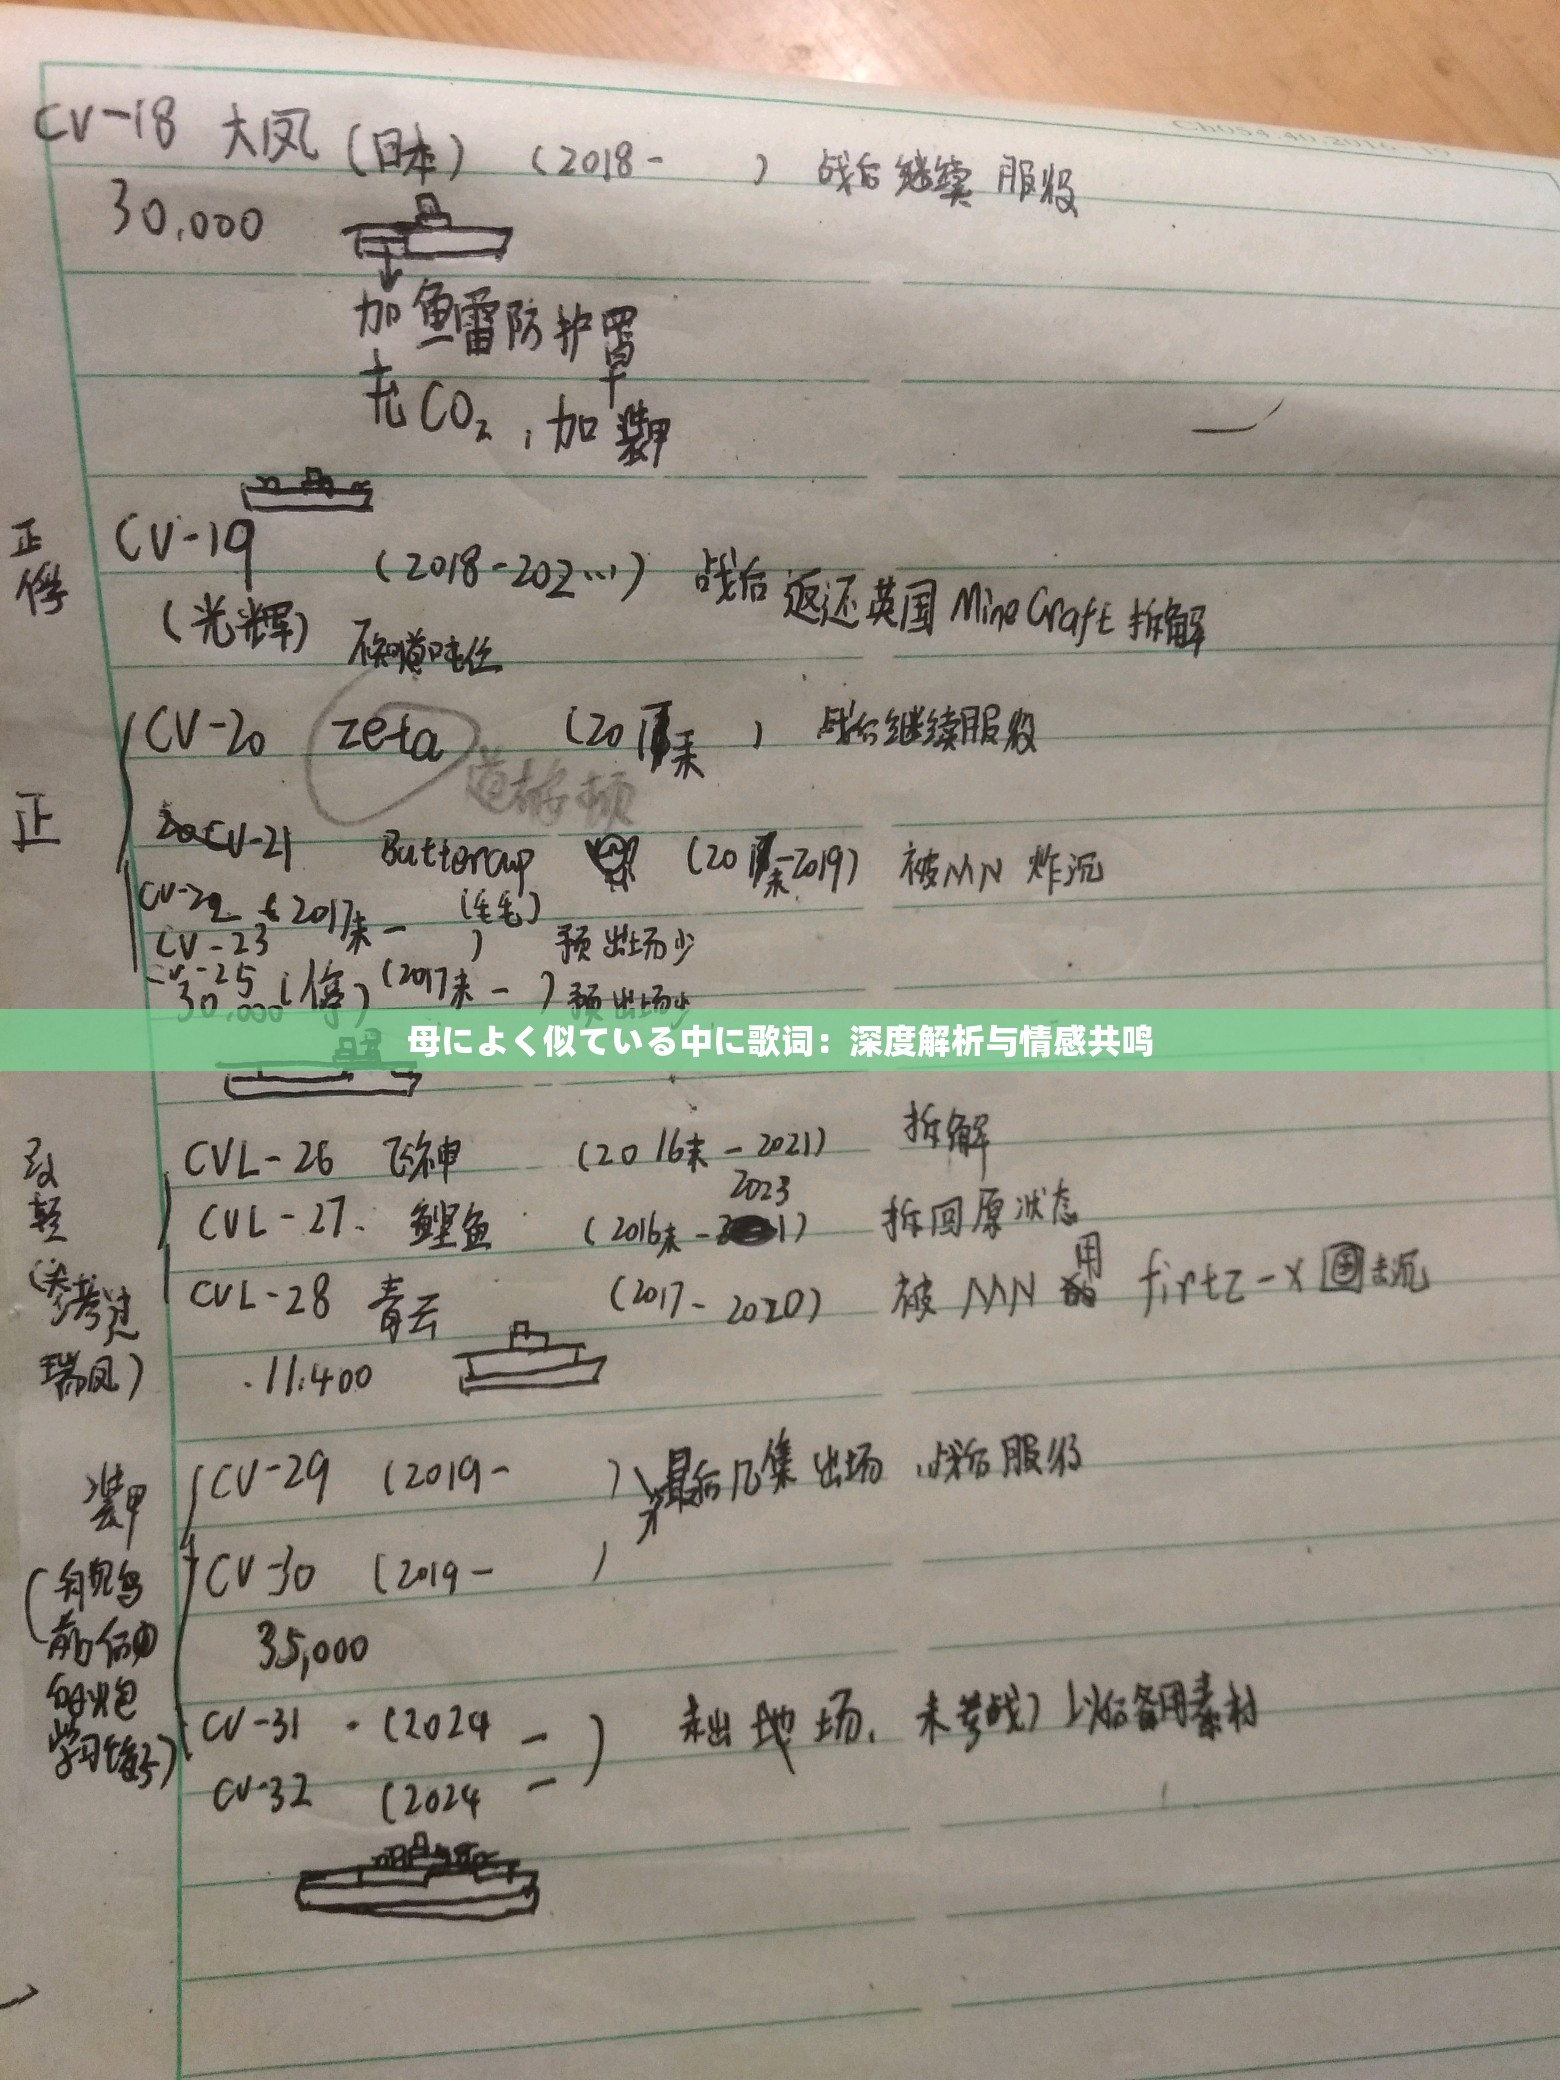 CV-18 大凤 (日本) (2018- ) 战后继续服役
30,000
加鱼雷防护罩
充CO₂,加装甲
CV-19 (2018-202…) 战后返还英国MineCraft拆解
(光辉) 不知道吨位
正
CV-20 zeta (201 末 ) 战后继续服役
正
CV-21 Buttercup (201 末-2019) 被MN炸沉
CV-22 2017末-
CV-23 ) 预出场少
CV-25 (2017末- ) 预出场少
30,000
母によく似ている中に歌词：深度解析与情感共鸣
CVL-26 飞神 (2016末-2021) 拆解
2023
CVL-27. 鲤鱼 (2016末- 1) 拆回原状态
轻
CVL-28 青云 (2017-2020) 被MN用 firtz-X 击沉
(参考过
瑞凤)
11,400
CV-29 (2019- ) 最后几集出场,战后服役
装甲
CV-30 (2019- )
35,000
CV-31 (2024- ) 未出场. 未参战) 以后备用素材
CV-32 (2024-